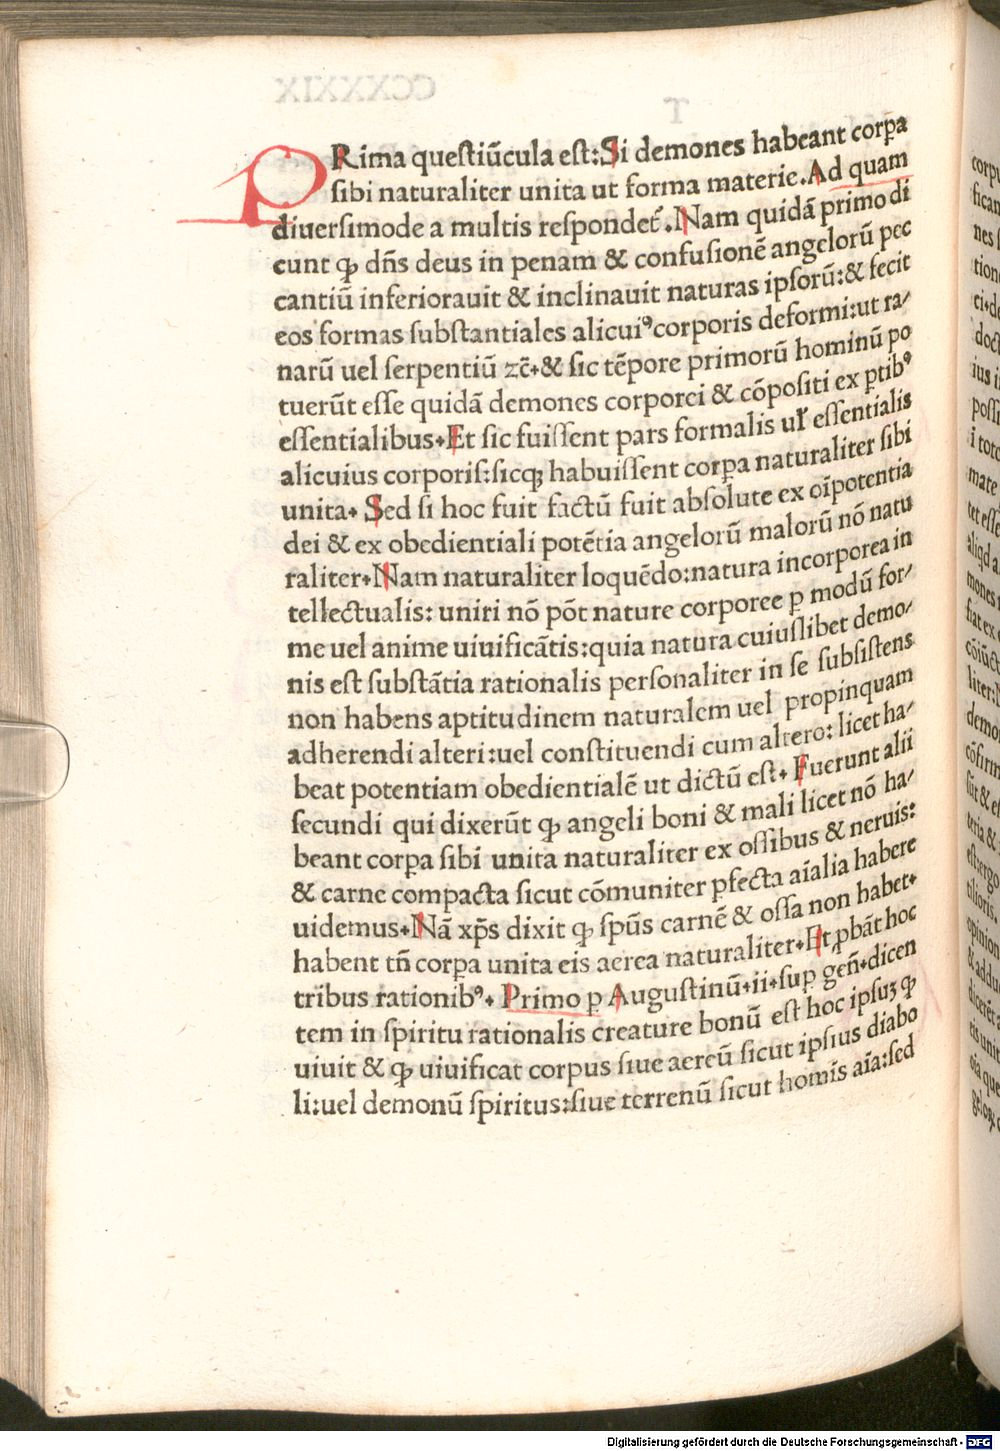 PRima questiũcula est:Si demones habeant corꝑa
sibi naturaliter unita ut forma materie.Ad quam
diuersimode a multis respondet᷑.Nam quidã primo di
cunt ꝙ dñs deus in penam & confusionẽ angelorũ pec
cantiũ inferiorauit & inclinauit naturas ipsorũ:& fecit
eos formas substantiales alicuiꝰ corporis deformi:ut ra/
narũ uel serpentiũ zc̃.& sic tẽpore primorũ hominũ po
tuerũt esse quidã demones corporei & cõpositi ex ꝑtibꝰ
essentialibus.Et sic fuissent pars formalis uł essentialis
alicuius corporis:sicqꝫ habuissent corꝑa naturaliter sibi
unita. Sed si hoc fuit factũ fuit absolute ex oĩpotentia
dei & ex obedientiali potẽtia angelorũ malorũ nõ natu
raliter.Nam naturaliter loquẽdo:natura incorporea in
tellectualis: uniri nõ põt nature corporee ꝑ modũ for/
me uel anime uiuificãtis:quia natura cuiuslibet demo/
nis est substãtia rationalis personaliter in se subsistens
non habens aptitudinem naturalem uel propinquam
adherendi alteri:uel constituendi cum altero: licet ha/
beat potentiam obedientialẽ ut dictũ est. Fuerunt alii
secundi qui dixerũt ꝙ angeli boni & mali licet nõ ha/
beant corꝑa sibi unita naturaliter ex ossibus & neruis:
& carne compacta sicut cõmuniter ꝑfecta aĩalia habere
uidemus.Nã xp̃s dixit ꝙ spũs carnẽ & ossa non habet.
habent tñ corꝑa unita eis aerea naturaliter.Et ꝓbãt hoc
tribus rationibꝰ. Primo ꝑ Augustinũ.ii.suꝑ geñ.dicen
tem in spiritu rationalis creature bonũ est hoc ipsuꝫ ꝙ
uiuit & ꝙ uiuificat corpus siue aereũ sicut ipsius diabo
li:uel demonũ spiritus:siue terrenũ sicut homĩs aĩa:sed
Digitalisierung gefördert durch die Deutsche Forschungsgemeinschaft - DFG